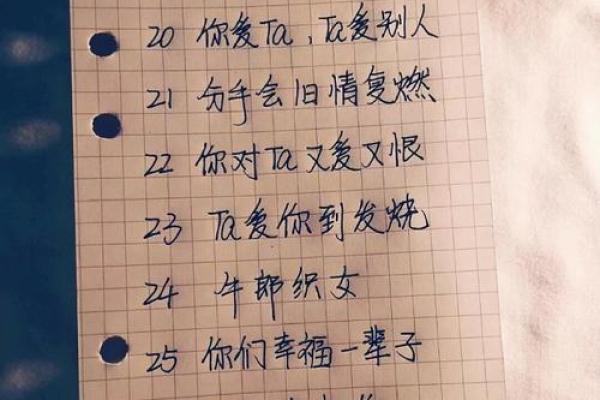 20 你爱Ta,Ta爱别人
21 分手会旧情复燃
22 你对Ta又爱又恨
23 Ta爱你到发烧
24 牛郎织女
25 你们幸福一辈子